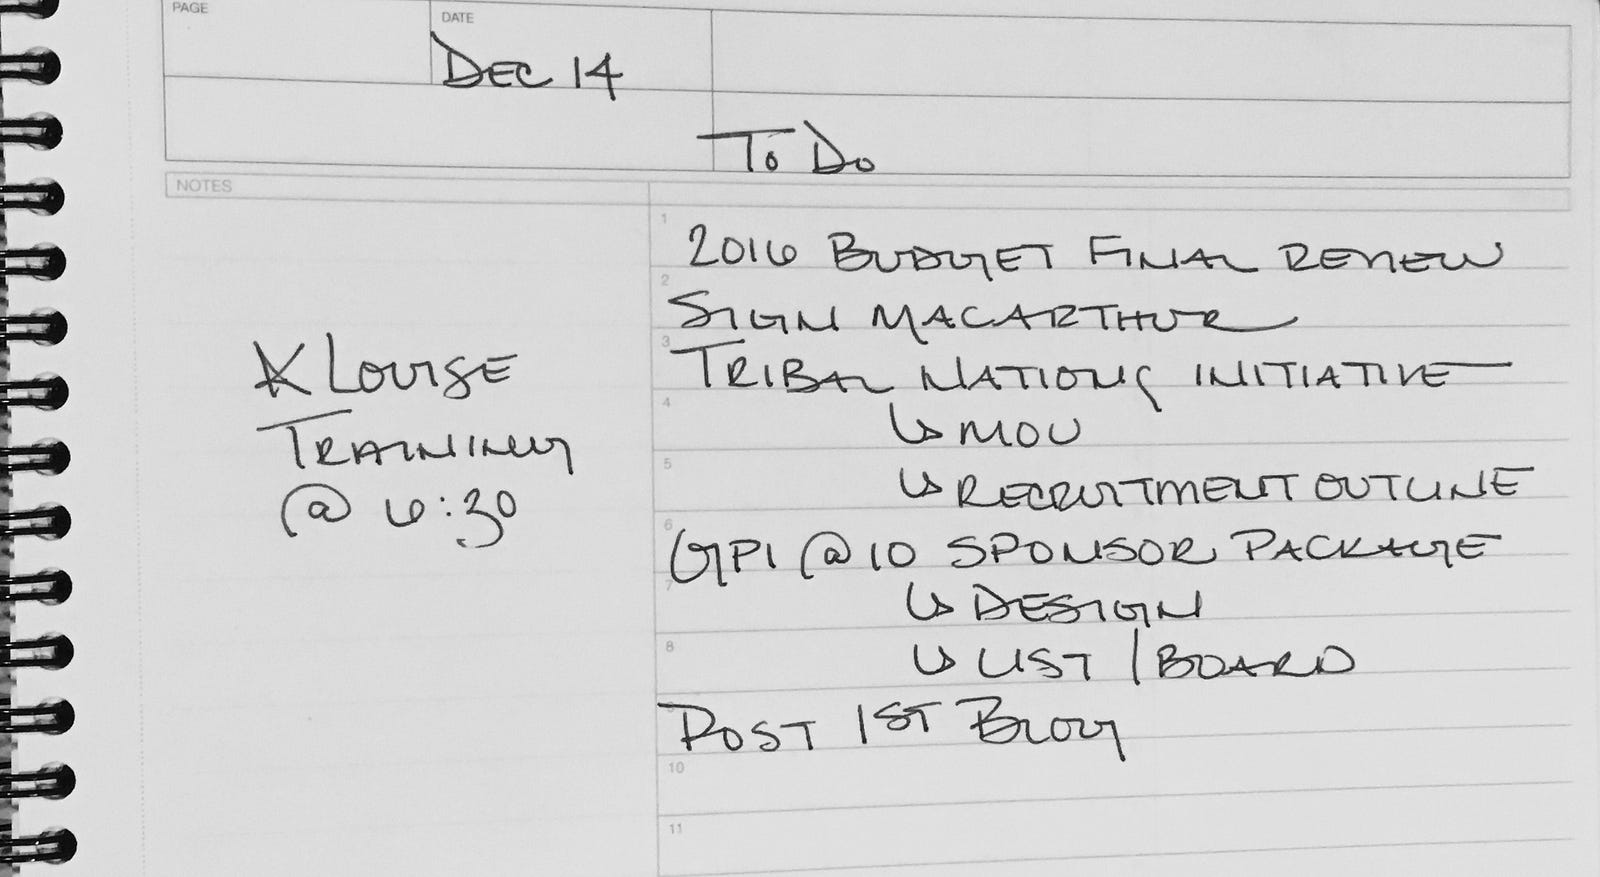 PAGE
DATE
DEC 14
TO DO
NOTES
1
2016 BUDGET FINAL REVIEW
2
SIGN MACARTHUR
3
TRIBAL NATIONS INITIATIVE
4
↳ MOU
5
↳ RECRUITMENT OUTLINE
6
GPI @ 10 SPONSOR PACKAGE
7
↳ DESIGN
8
↳ LIST / BOARD
9
POST 1ST BLOG
10
11
* LOUISE
TRAINING
@ 6:30